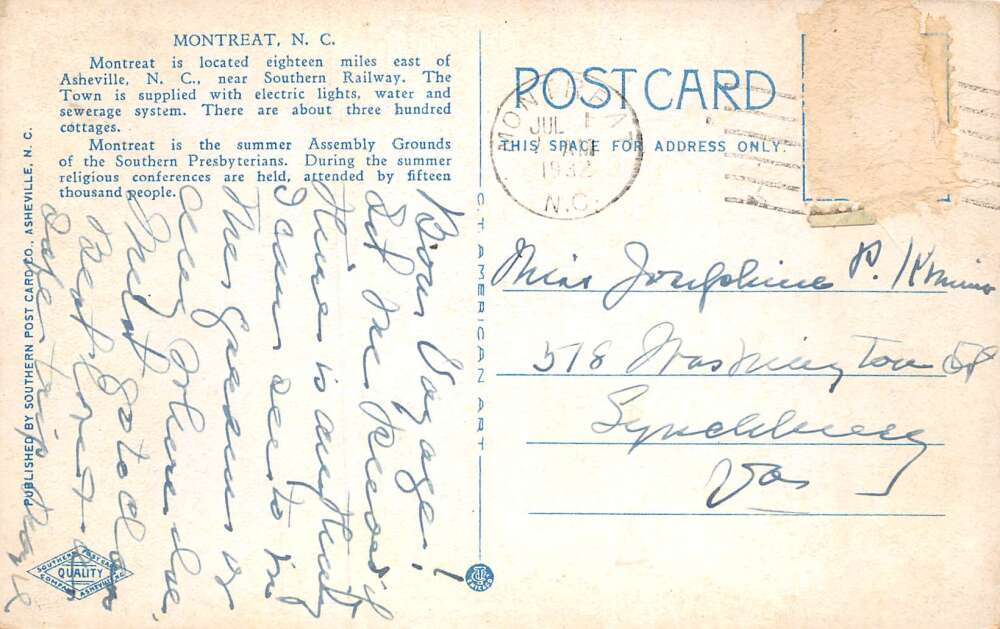 MONTREAT, N. C.
Montreat is located eighteen miles east of
Asheville, N. C., near Southern Railway. The
Town is supplied with electric lights, water and
sewerage system. There are about three hundred
cottages.
Montreat is the summer Assembly Grounds
of the Southern Presbyterians. During the summer
religious conferences are held, attended by fifteen
thousand people.
PUBLISHED BY SOUTHERN POST CARD CO., ASHEVILLE, N. C.
SOUTHERN POST CARD
QUALITY
COMPANY ASHEVILLE, N.C.
Bon Voyage!
Let me know if
there is anything
I can see to in
the garden or
any where else.
Best love
C.T. AMERICAN ART
POST CARD
THIS SPACE FOR ADDRESS ONLY.
MONTREAT
JUL 1
AM
1932
N.C.
Miss Josephine P.
518 Washington St
Lynchburg
Va